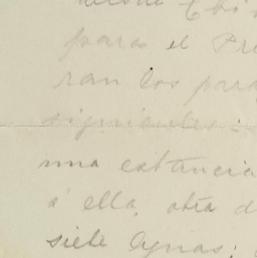 desde Chi
para el Pre
ran los para
siguientes
una estancia
á ella, otra d
siete Aguas;